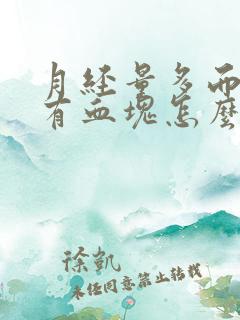 月经量多而
有血塊怎麼
徐凯
未经同意禁止转载